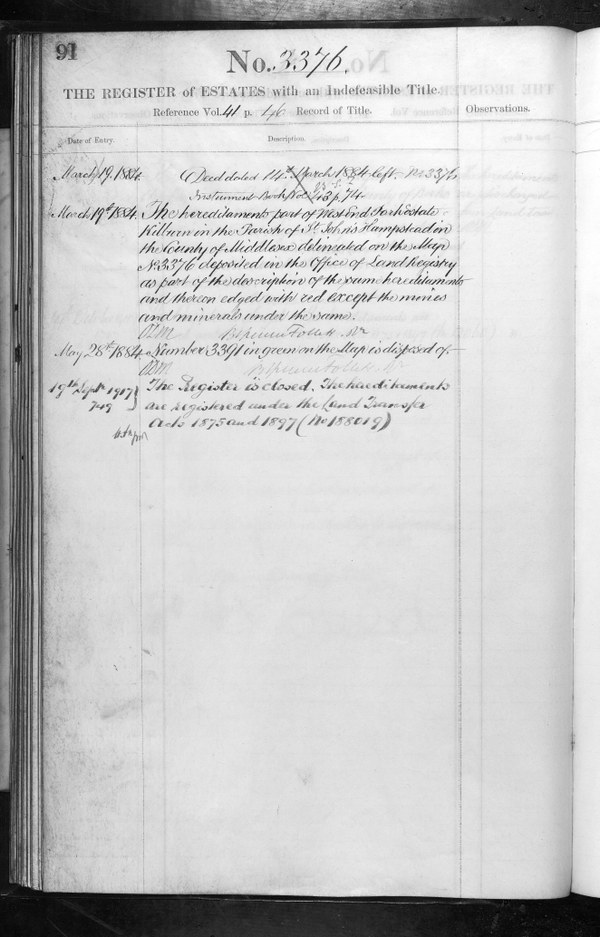 91
No. 3376.
THE REGISTER of ESTATES with an Indefeasible Title.
Reference Vol. 41 p. 46 Record of Title.
Observations.
Date of Entry.
Description.
March 19. 1884. Deed dated 14th March 1884 left. No 3376
Instrument Book Vol 13 p. 74.
March 19th 1884. The hereditaments part of West end Park Estate
Kilburn in the Parish of St. John's Hampstead in
the County of Middlesex delineated on the Map
No. 3376 deposited in the Office of Land Registry
as part of the description of the same hereditaments
and thereon edged with red except the mines
and minerals under the same.
May 28th 1884. Number 3391 in green on the Map is disposed of.
19th Sept 1917 The Register is closed. The hereditaments
are registered under the Land Transfer
Acts 1875 and 1897 (No 188019)